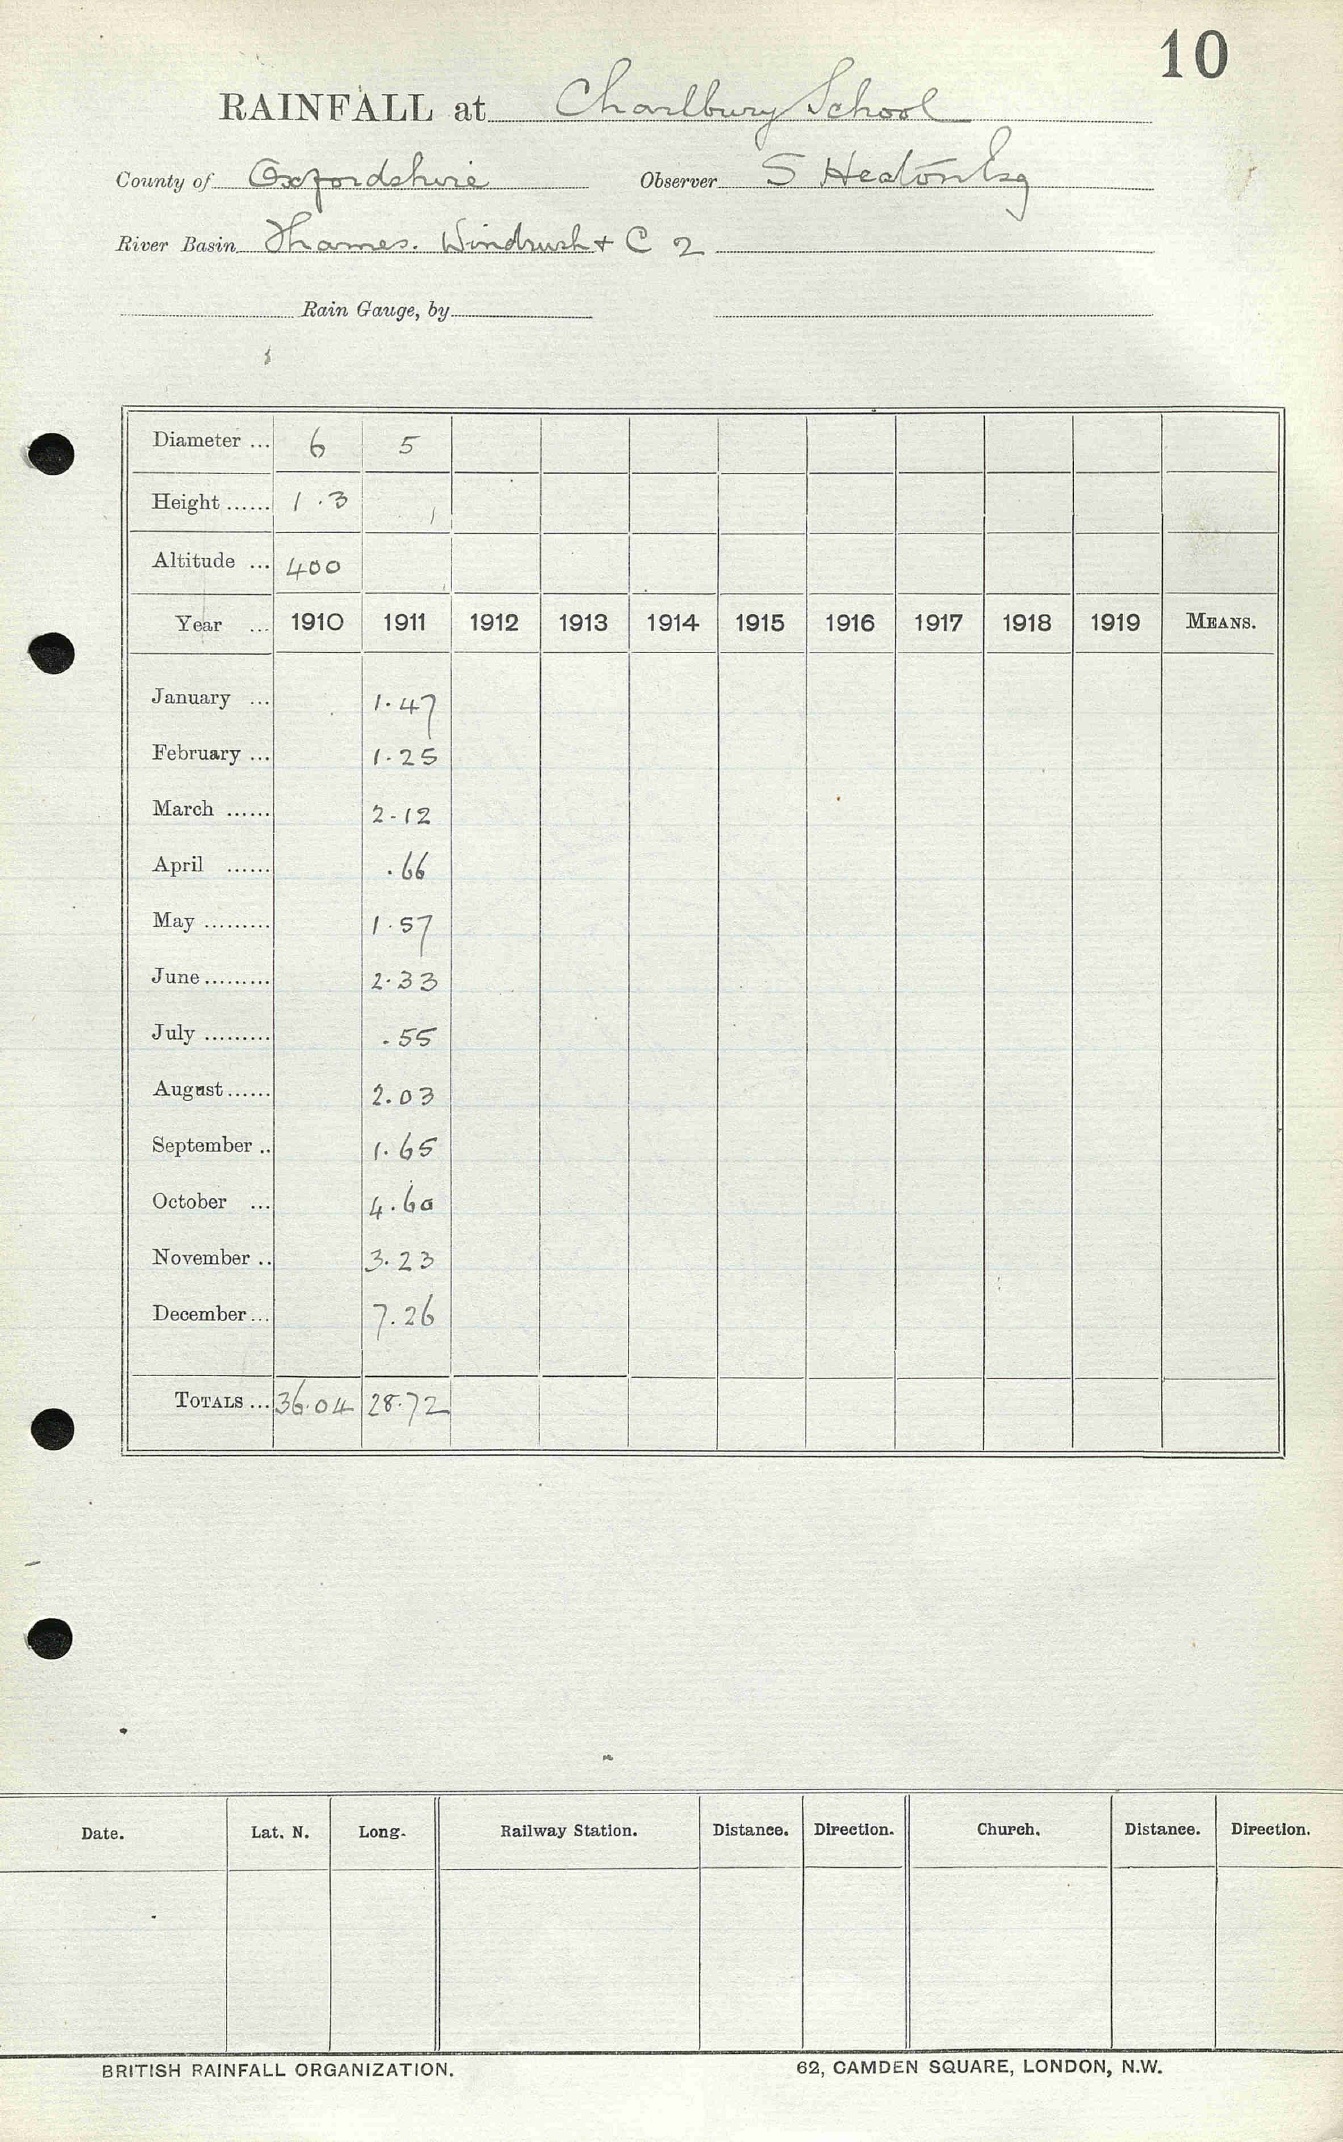 10
RAINFALL at Charlbury School
County of Oxfordshire Observer S Heaton Esq
River Basin Thames. Windrush + C 2
Rain Gauge, by
Diameter ... 6 5
Height ...... 1.3
Altitude ... 400
Year ... 1910 1911 1912 1913 1914 1915 1916 1917 1918 1919 MEANS.
January ... 1.47
February ... 1.25
March ...... 2.12
April ...... .66
May ......... 1.57
June ......... 2.33
July ......... .55
August ...... 2.03
September .. 1.65
October ... 4.60
November .. 3.23
December ... 7.26
TOTALS ... 36.04 28.72
Date. Lat. N. Long. Railway Station. Distance. Direction. Church. Distance. Direction.
BRITISH RAINFALL ORGANIZATION. 62, CAMDEN SQUARE, LONDON, N.W.